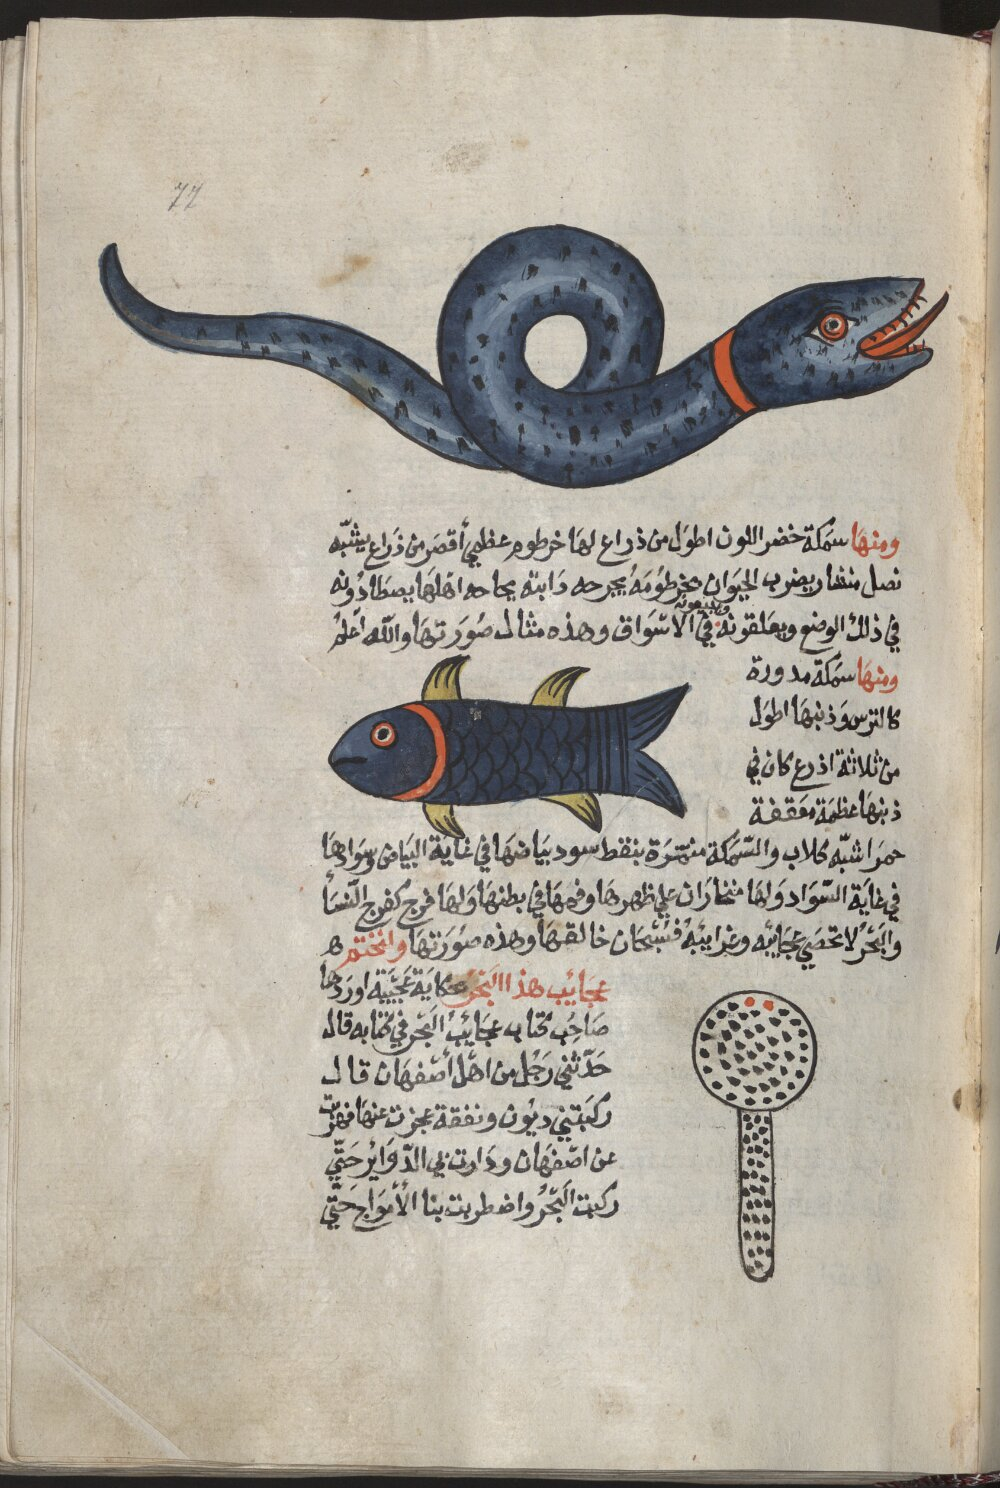 77
ومنها سمكة خضر اللون اطول من ذراع لها خرطوم عظمي أقصر من ذراع يشبّه
نصل منشار يضرب الحيوان بخرطومه يجرحه
ويبيعونه
في ذلك الوضع ويعلقونه في الاسواق وهذه مثال صورتها والله اعلم
ومنها سمكة مدورة
كالترس وذنبها اطول
من ثلاثة اذرع كان في
ذنبها عظمة معقفة
حمرا شبّه كلاب والسّمكة منمّرة بنقط سود بياضها في غاية البياض وسوادها
في غاية السّواد ولها منخاران علي ظهرها وفمها في بطنها ولها فرج كفرج النّسأ
والبحر لا تحصي عجايبه وغرايبه فسبحان خالقها وهذه صورتها ولنختم
عجايب هذا البحر بحكاية عجيبة اوردها
صاحب كتاب عجايب البحر في كتابه قال
حدّثني رجل من اهل أصفهان قال
ركبتني ديون ونفقة عجزت عنها فهربت
عن اصفهان ودارت بي الدّواير حتّي
ركبت البحر واضطربت بنا الأمواج حتّي